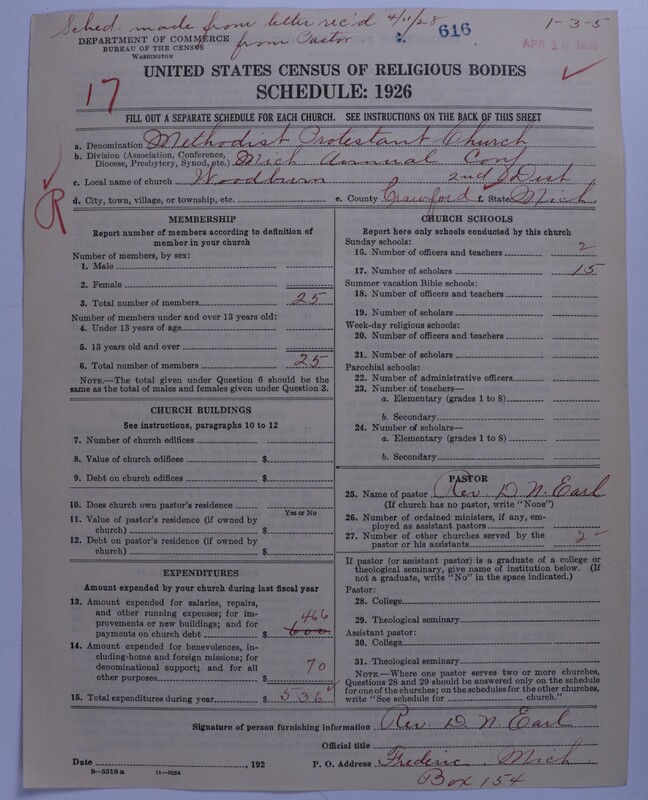 Sched. made from letter rec'd 4/11/28
from Pastor
616
1-3-5
DEPARTMENT OF COMMERCE
BUREAU OF THE CENSUS
WASHINGTON
APR 1
17
UNITED STATES CENSUS OF RELIGIOUS BODIES
SCHEDULE: 1926
FILL OUT A SEPARATE SCHEDULE FOR EACH CHURCH. SEE INSTRUCTIONS ON THE BACK OF THIS SHEET
a. Denomination Methodist Protestant Church
b. Division (Association, Conference, Diocese, Presbytery, Synod, etc.) Mich Annual Conf
c. Local name of church Woodburn 2nd Dist
R
d. City, town, village, or township, etc. e. County Crawford f. State Mich.
MEMBERSHIP
Report number of members according to definition of
member in your church
Number of members, by sex:
1. Male
2. Female
3. Total number of members 25
Number of members under and over 13 years old:
4. Under 13 years of age
5. 13 years old and over
6. Total number of members 25
NOTE.—The total given under Question 6 should be the
same as the total of males and females given under Question 3.
CHURCH BUILDINGS
See instructions, paragraphs 10 to 12
7. Number of church edifices
8. Value of church edifices $
9. Debt on church edifices $
10. Does church own pastor's residence
Yes or No
11. Value of pastor's residence (if owned by
church) $
12. Debt on pastor's residence (if owned by
church) $
EXPENDITURES
Amount expended by your church during last fiscal year
13. Amount expended for salaries, repairs,
and other running expenses; for im-
provements or new buildings; and for 466
payments on church debt $ 600
14. Amount expended for benevolences, in-
cluding-home and foreign missions; for
denominational support; and for all 70
other purposes $
15. Total expenditures during year $ 536
CHURCH SCHOOLS
Report here only schools conducted by this church
Sunday schools:
16. Number of officers and teachers 2
17. Number of scholars 15
Summer vacation Bible schools:
18. Number of officers and teachers
19. Number of scholars
Week-day religious schools:
20. Number of officers and teachers
21. Number of scholars
Parochial schools:
22. Number of administrative officers
23. Number of teachers—
a. Elementary (grades 1 to 8)
b. Secondary
24. Number of scholars—
a. Elementary (grades 1 to 8)
b. Secondary
PASTOR
25. Name of pastor Rev. D. N. Earl
(If church has no pastor, write "None")
26. Number of ordained ministers, if any, em-
ployed as assistant pastors
27. Number of other churches served by the
pastor or his assistants 2
If pastor (or assistant pastor) is a graduate of a college or
theological seminary, give name of institution below. (If
not a graduate, write "No" in the space indicated.)
Pastor:
28. College
29. Theological seminary
Assistant pastor:
30. College
31. Theological seminary
NOTE.—Where one pastor serves two or more churches,
Questions 28 and 29 should be answered only on the schedule
for one of the churches; on the schedules for the other churches,
write "See schedule for church."
Signature of person furnishing information Rev. D. N. Earl
Official title
Date , 192 P. O. Address Frederic, Mich
8-5318 a 11-9054
Box 154